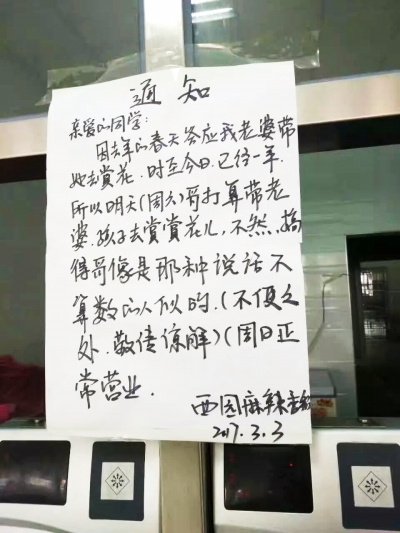 通知
亲爱的同学:
因去年的春天答应我老婆带
她去赏花.时至今日.已经一年.
所以明天(周六)哥打算带老
婆.孩子去赏赏花儿,不然.搞
得哥像是那种说话不
算数的人似的.(不便之
处.敬请谅解)(周日正
常营业.
西园麻辣香锅
2017.3.3